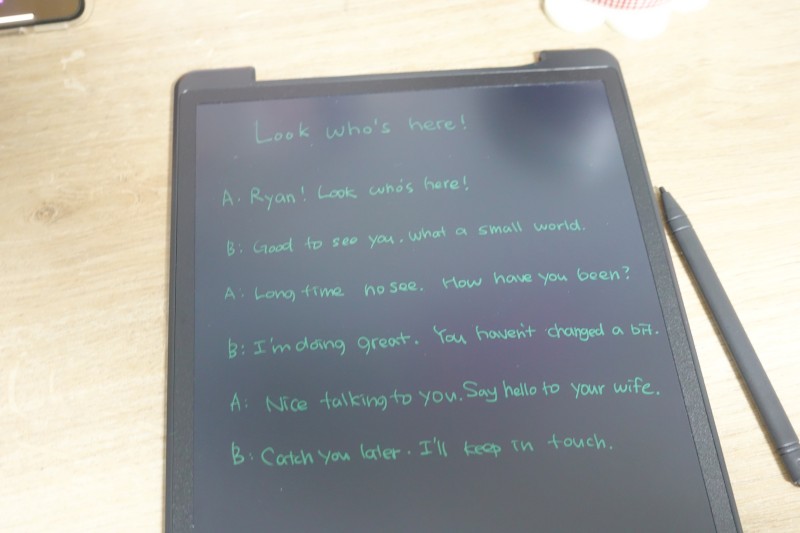 Look who's here!
A. Ryan! Look who's here!
B: Good to see you. What a small world.
A: Long time no see. How have you been?
B: I'm doing great. You haven't changed a bit.
A: Nice talking to you. Say hello to your wife.
B: Catch you later. I'll keep in touch.